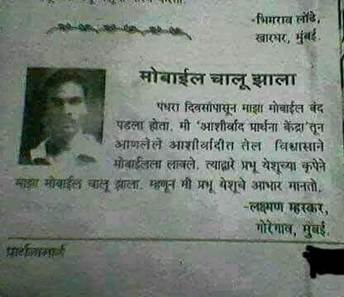 -भिमराव लोंढे,
खारघर, मुंबई.
मोबाईल चालू झाला
पंधरा दिवसांपासून माझा मोबाईल बंद
पडला होता. मी 'आशीर्वाद प्रार्थना केंद्रा'तून
आणलेले आशीर्वादीत तेल विश्वासाने
मोबाईलला लावले. त्याद्वारे प्रभू येशूच्या कृपेने
माझा मोबाईल चालू झाला. म्हणून मी प्रभू येशूचे आभार मानतो.
-लक्ष्मण म्हस्कर,
गोरेगाव, मुंबई.